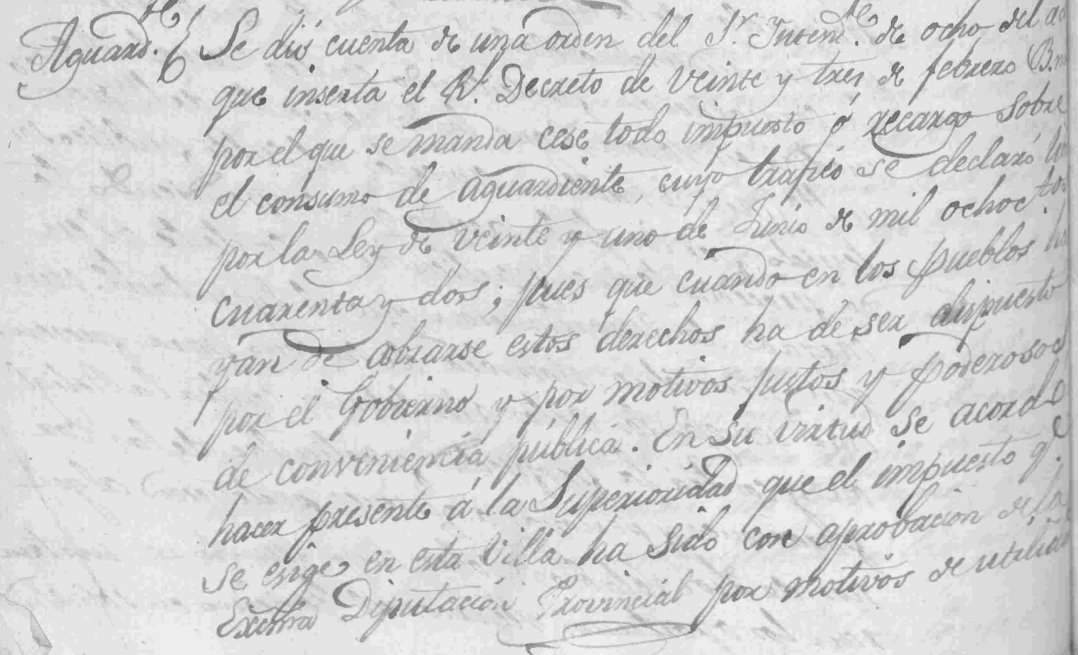 Aguard.te Se dió cuenta de una orden del S.r Intend.te de ocho del
que inserta el R.l Decreto de veinte y tres de febrero
por el que se manda cese todo impuesto ó recargo sobre
el consumo de aguardiente, cuyo trafico se declaró
por la Ley de veinte y uno de Junio de mil ochoc.tos
cuarenta y dos; pues que cuando en los pueblos ha
yan de cobrarse estos derechos ha de ser dispuesto
por el Gobierno y por motivos justos y poderosos
de conveniencia pública. En su virtud se acordó
hacer presente á la Superioridad que el impuesto q.e
se exige en esta Villa ha sido con aprobacion de la
Excma Diputación Provincial por motivos de utilidad